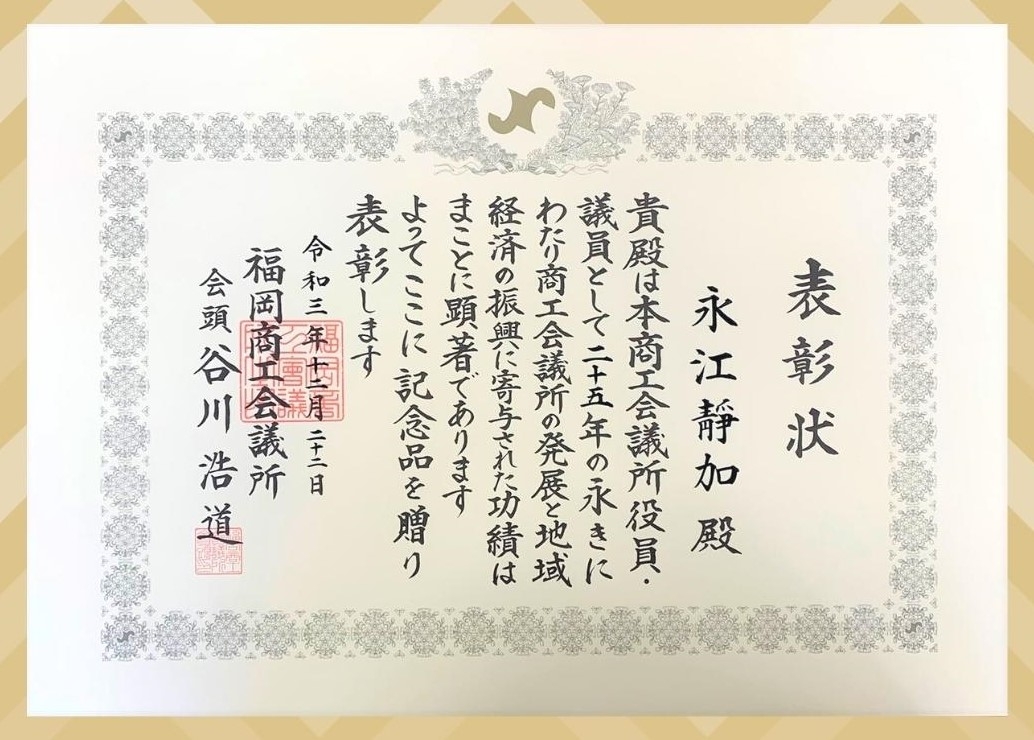 表彰状
永江靜加 殿
貴殿は本商工会議所役員・
議員として二十五年の永きに
わたり商工会議所の発展と地域
経済の振興に寄与された功績は
まことに顕著であります
よってここに記念品を贈り
表彰します
令和三年十二月二十二日
福岡商工会議所
会頭 谷川浩道